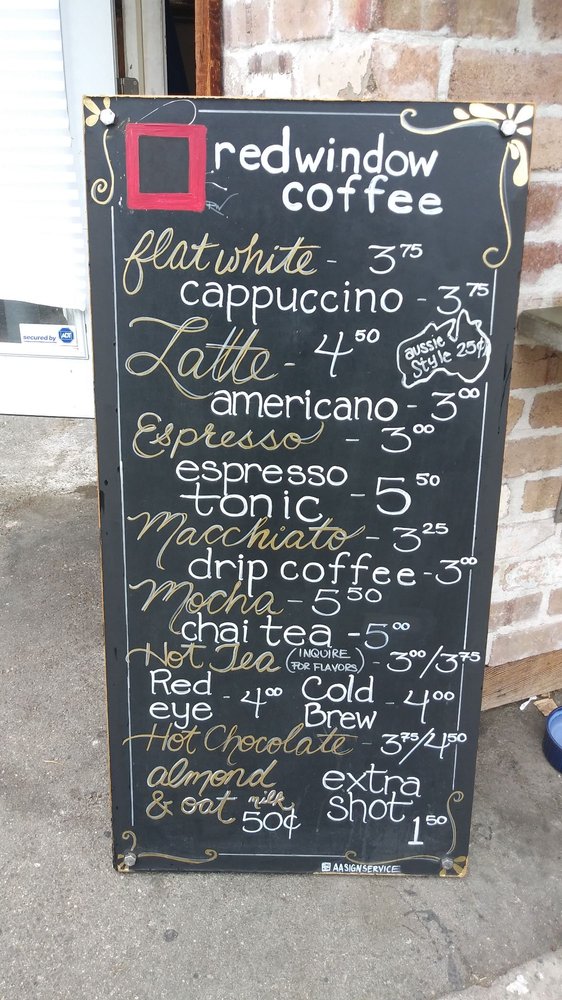 redwindow
coffee
flat white - 3.75
cappuccino - 3.75
Latte - 4.50
aussie
style 25¢
americano - 3.00
Espresso - 3.00
espresso
tonic - 5.50
Macchiato - 3.25
drip coffee - 3.00
Mocha - 5.50
chai tea - 5.00
Hot Tea (INQUIRE FOR FLAVORS) - 3.00/3.75
Red eye - 4.00 Cold Brew - 4.00
Hot Chocolate - 3.75/4.50
almond
& oat milk 50¢
extra
shot 1.50
AASIGNSERVICE
secured by ADT